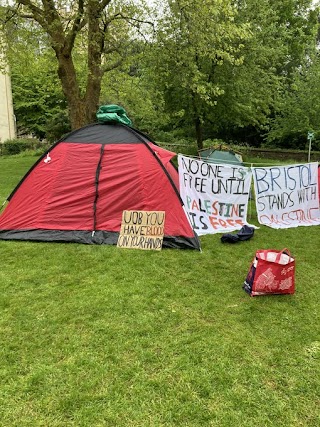 UOB YOU
HAVE BLOOD
ON YOUR HANDS
NO ONE IS
FREE UNTIL
PALESTINE
IS FREE
BRISTOL
STANDS WITH
PALESTINE